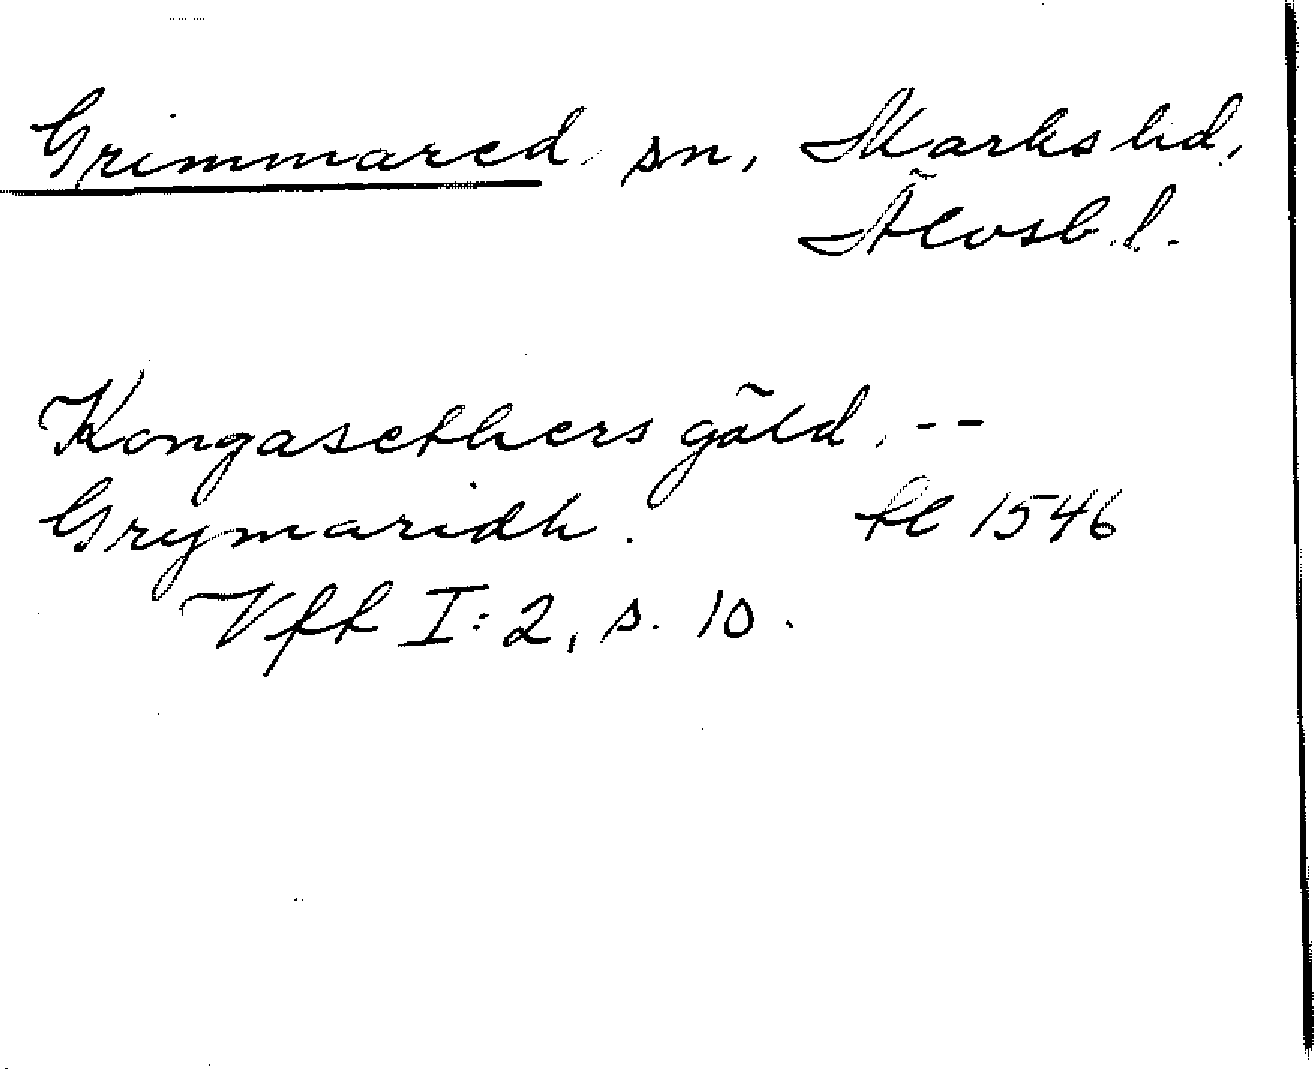 Grimmared, sn, Marks hd,
Älvsb. l.
Kongasethers gäld, --
Grymaridh. fl 1546
Vfl I:2, s. 10.